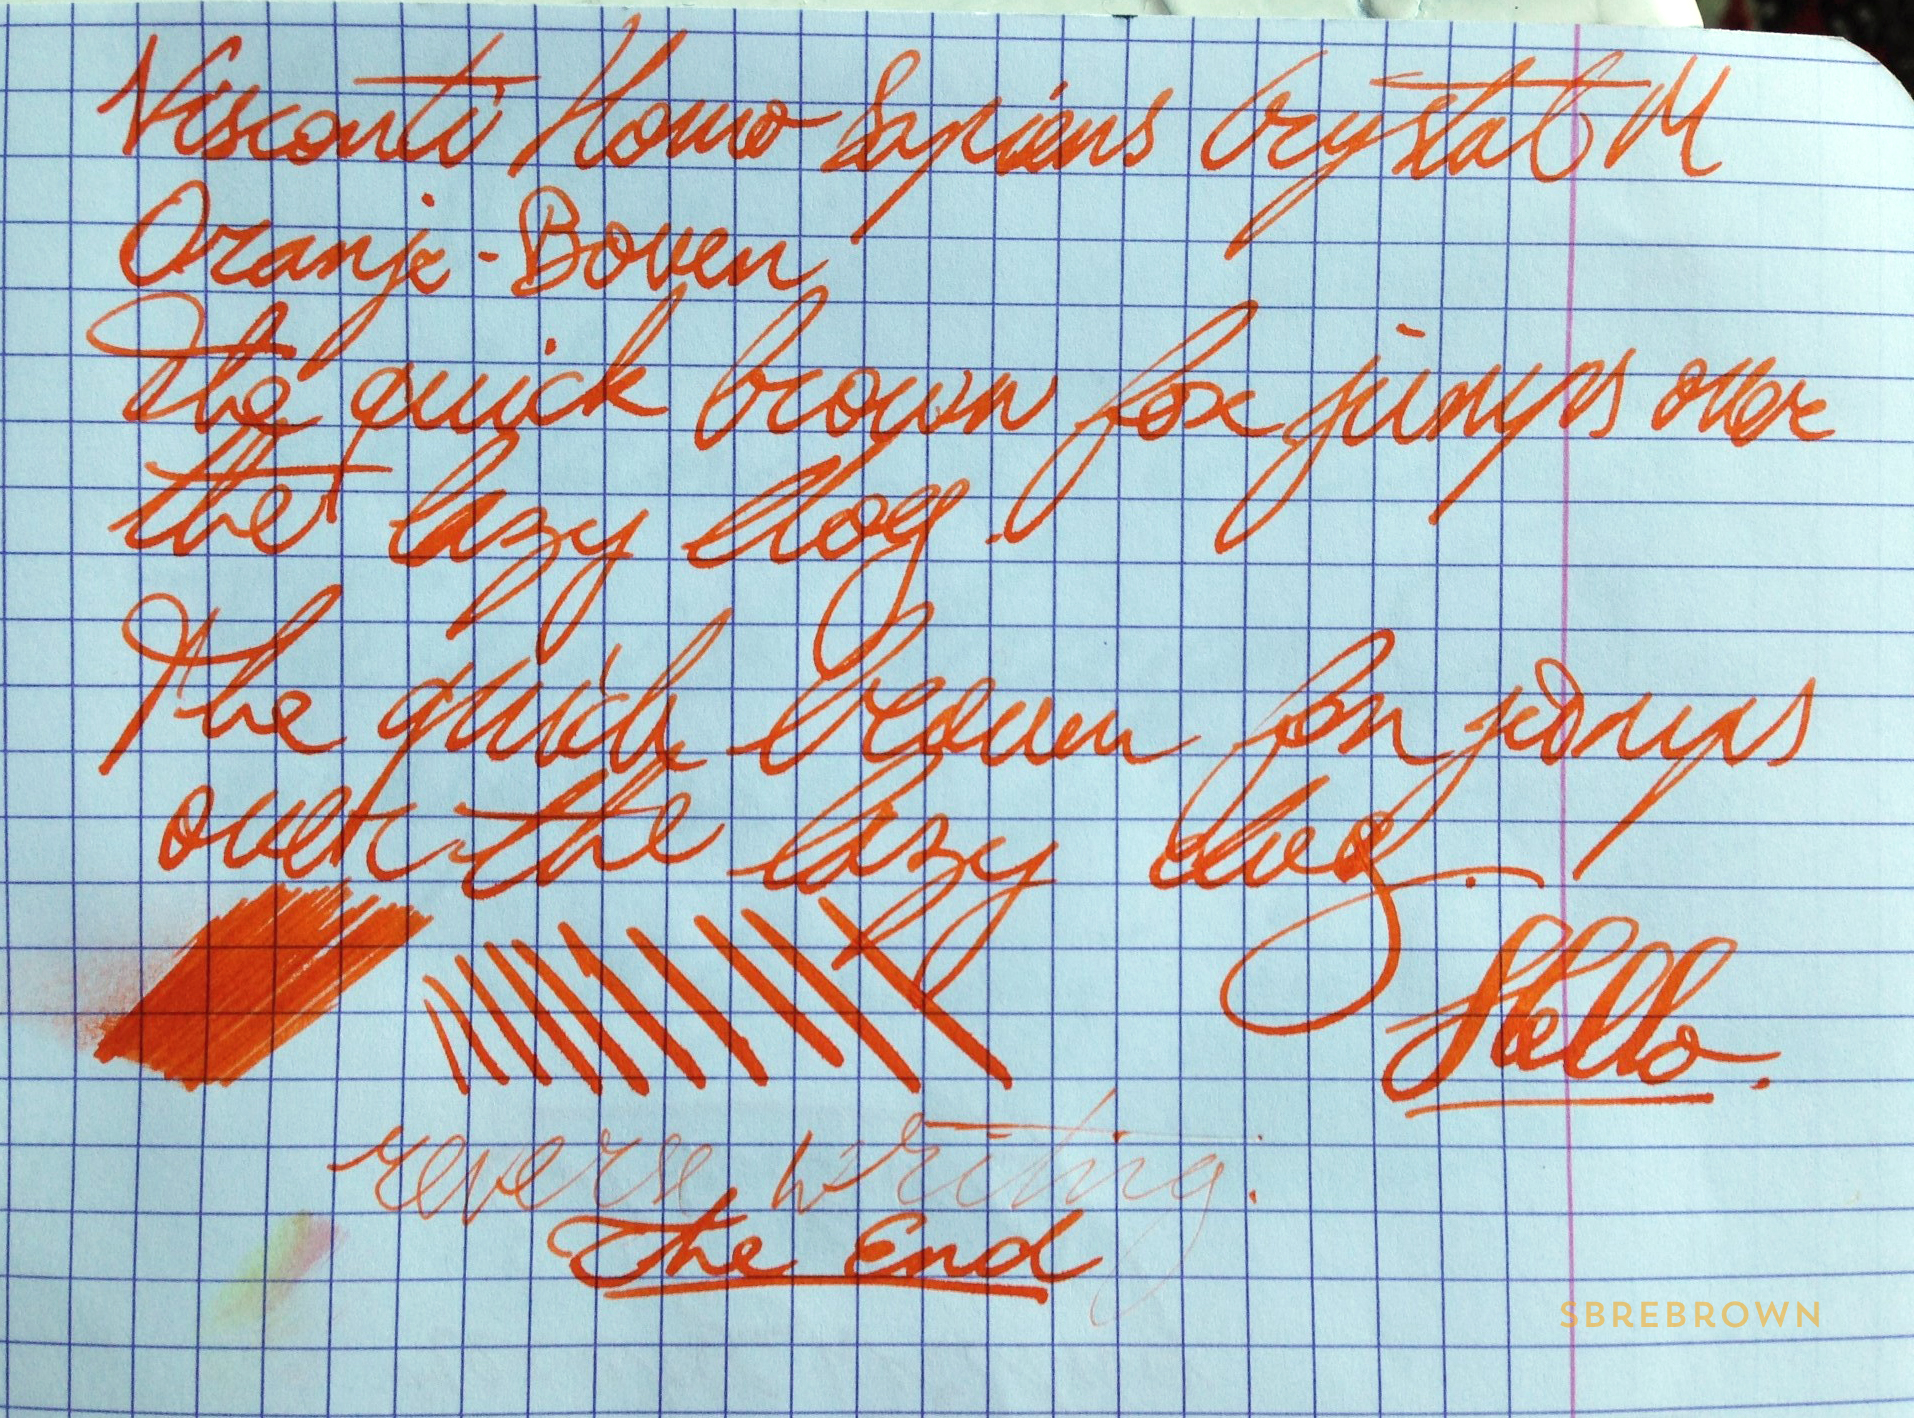 Visconti Homo Sapiens Crystal M
Oranje-Boven
The quick brown fox jumps over
the lazy dog.
The quick brown fox jumps
over the lazy dog.
Hello.
reverse writing.
The End
SBREBROWN